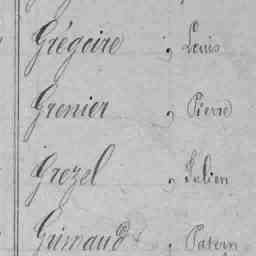 Grégoire, Louis
Grenier, Pierre
Grezel, Julien
Grimaud, Patern